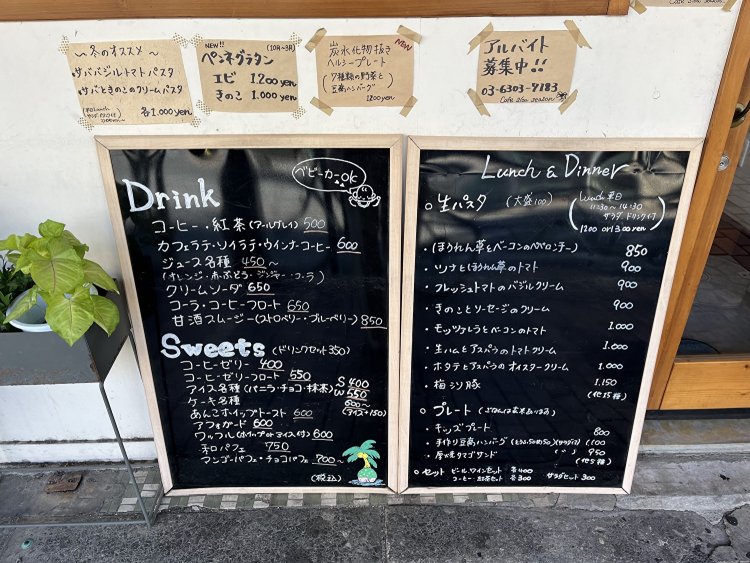 〜冬のオススメ〜
・サババジルトマトパスタ
・サバときのこのクリームパスタ
各1.000yen
NEW!! (10R〜3R)
ペンネグラタン
エビ 1.200yen
きのこ 1.000yen
炭水化物抜き NEW
ヘルシープレート
7種類の野菜と
豆腐ハンバーグ
1200yen
アルバイト
募集中!!
03-6303-9183
ベビーカーOK
Drink
コーヒー・紅茶(アールグレイ) 500
カフェラテ・ソイラテ・ウインナーコーヒー 600
ジュース各種 450〜
(オレンジ・赤ぶどう・ジンジャー・コーラ)
クリームソーダ 650
コーラ・コーヒーフロート 650
甘酒スムージー(ストロベリー・ブルーベリー) 850
Sweets (ドリンクセット350)
コーヒーゼリー 400
コーヒーゼリーフロート 550
アイス各種(バニラ・チョコ・抹茶) S 400
W 550
ケーキ各種 600〜
(アイス+150)
あんこホイップトースト 600
アフォガード 600
ワッフル(ホイップorアイス付) 600
和風パフェ 750
マンゴーパフェ・チョコパフェ 700
(税込)
Lunch & Dinner
○生パスタ (大盛100)
Lunch 平日
11:30〜14:30
サラダ ドリンク付
1200 or 1300yen
・ほうれん草とベーコンのペペロンチーノ 850
・ツナとほうれん草のトマト 900
・フレッシュトマトのバジルクリーム 900
・きのことソーセージのクリーム 900
・モッツァレラとベーコンのトマト 1.000
・生ハムとアスパラのトマトクリーム 1.000
・ホタテとアスパラのオイスタークリーム 1.000
・梅シソ豚 1,150
(他15種)
○プレート
・キッズプレート 800
・手作り豆腐ハンバーグ 1100
・厚焼タマゴサンド 950
(他5種)
○セット ビール、ワインセット 各400
コーヒー・紅茶セット 各300 サラダセット 300